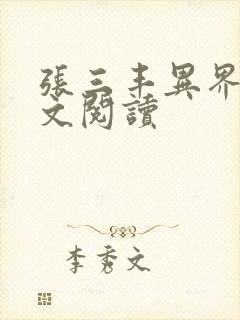 張三丰異界
文閱讀
李秀文